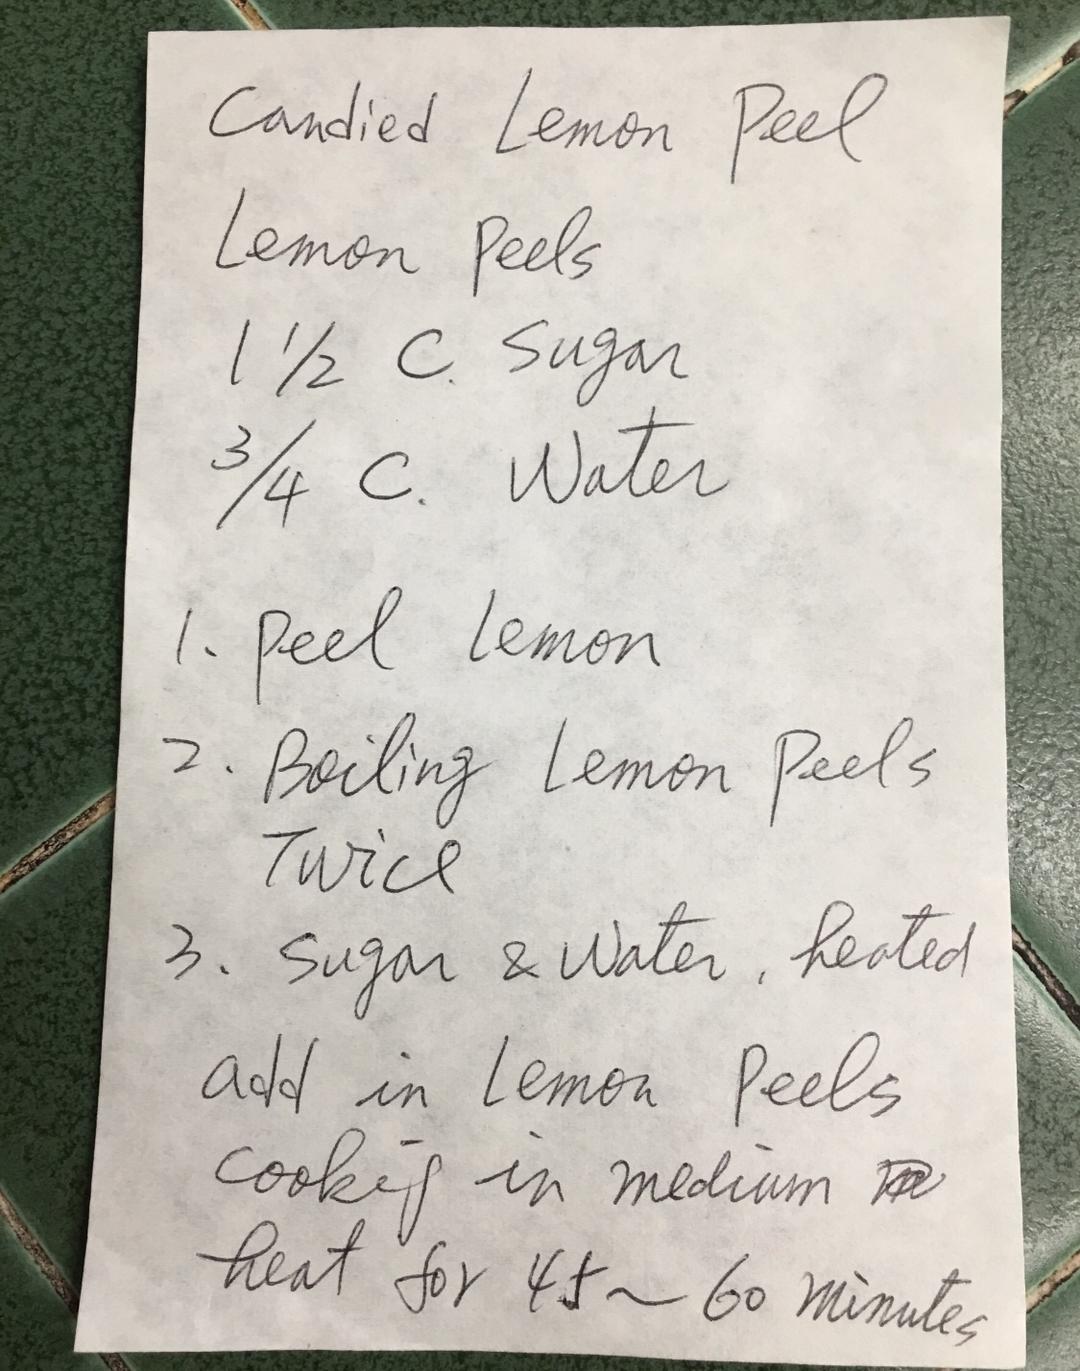 Candied Lemon Peel
Lemon Peels
1 1/2 C. Sugar
3/4 C. Water
1. Peel Lemon
2. Boiling Lemon Peels
Twice
3. Sugar & Water, heated
add in Lemon Peels
cooking in medium
heat for 45~60 minutes